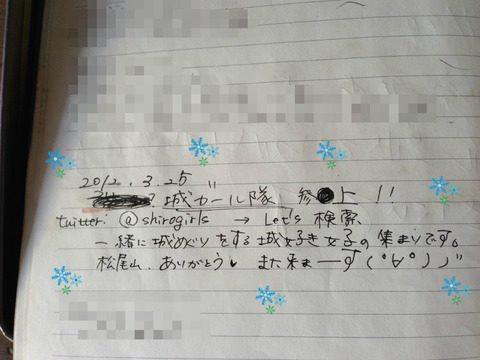 2012.3.25
城ガール隊 参上!!
twitter: @shirogirls → Let's 検索
一緒に城めぐりをする城好き女子の集まりです。
松尾山、ありがとう♥ また来まーす(°∀°)ノ"